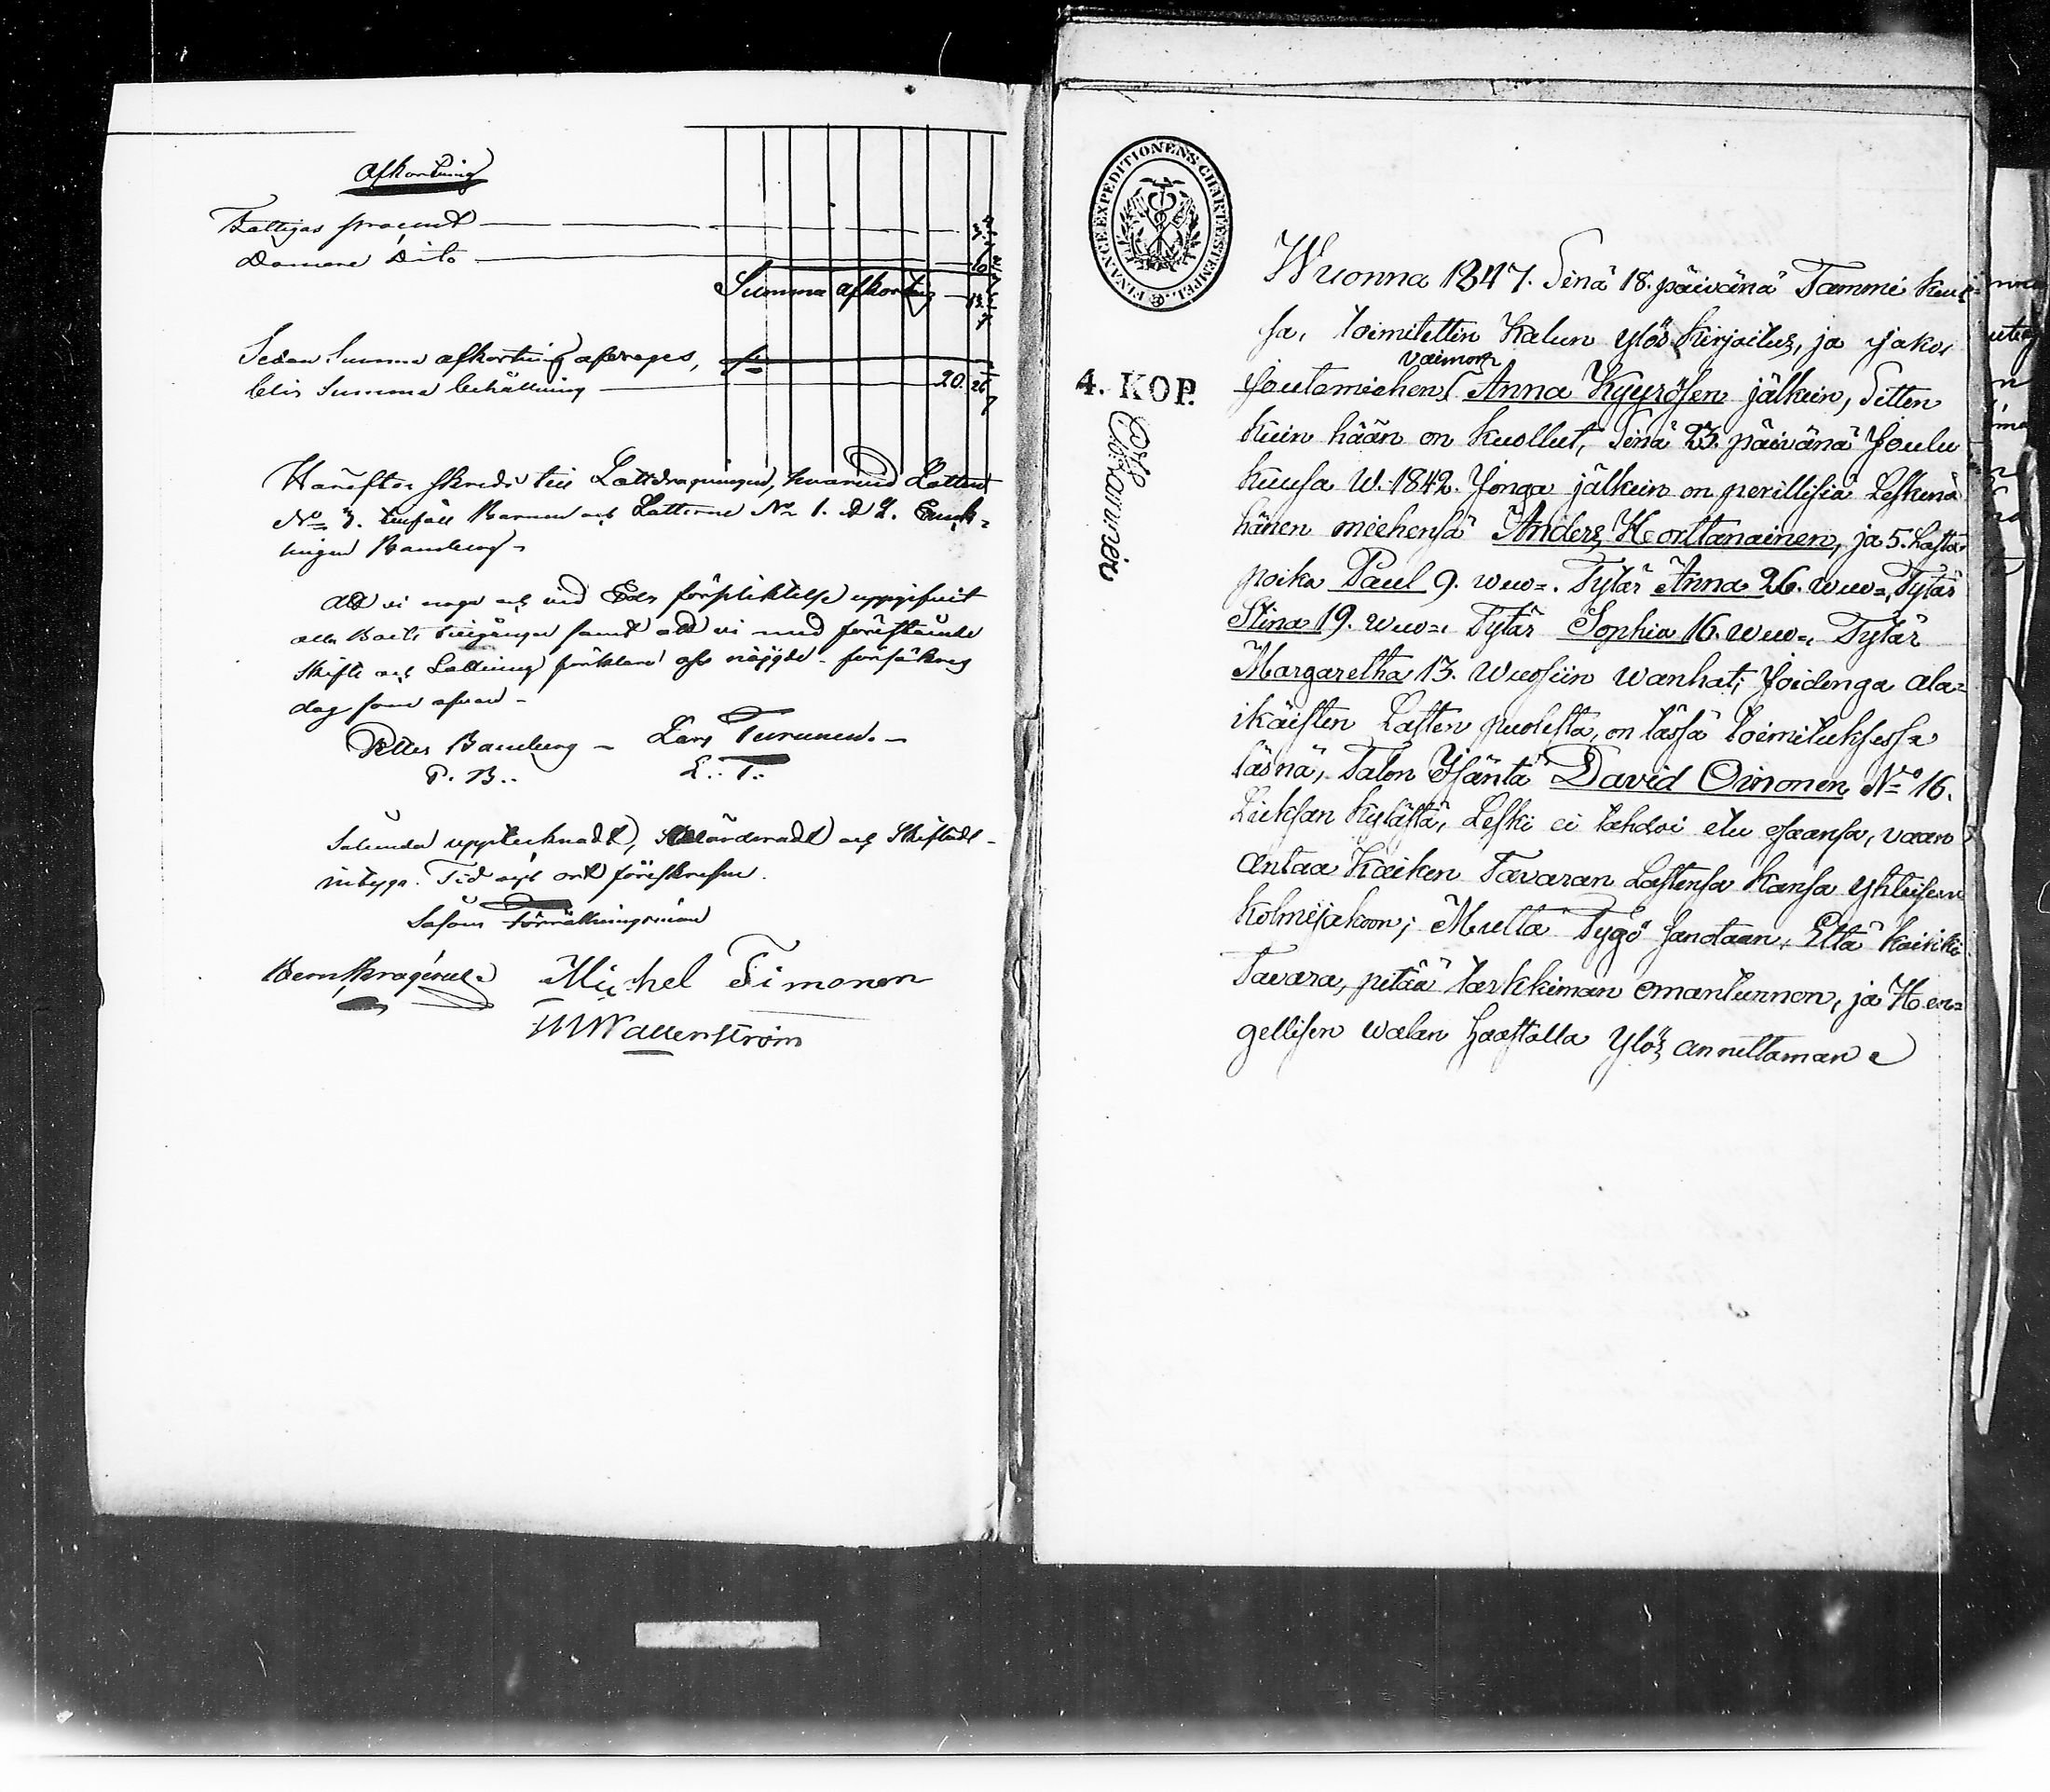 Afkortning
Fattigas procent
Domare Dito
Summa afkortng
Sedan Summa afkortning afdrages,
blir Summa behållning 20. 26
Härefter skreds till Lottdragningen, hvarvid Lotten
No 3. tillföll Barnen och Lotterne No 1. & 2. Enck-
lingen Bamberg-
Att vi noga och vid Eds förpliktelse uppgifvit
alla Boets tillgångar samt att vi med förestående
Skifte och Lottning förklara oss nöjgde försäkras
dag som ofvan -
Petter Bamberg - Lars Turunen. -
P. B.. L.. T..
Sålunda upptecknadt, Värderadt och Skiftadt -
intyga. Tid och ort föreskrefne.
Såsom Förrättningsmän
Michel Timonen
Wallenström
FINANCE EXPEDITIONENS CHARTÆ STEMPEL.
4. KOP.
Wuonna 1847. Sinä 18. päivänä Tammi kuu-
sa, toimitettin Kalun ylös kirjoitus, ja jako,
vaimon
Joutomiehen Anna Kyyrösen jälkein, Sitten
kuin hään on kuollut, Sinä 23. päivänä Joulu
kuusa W. 1842. Jonga jälkein on perillisiä Leskenä
hänen miehensä Anders Horttanainen, ja 5. Lasta
poika Paul 9. wuo=. Tytär Anna 26. wuo=, Tytär
Stina 19. wuo=, Tytär Sophia 16. wuo=, Tytär
Margaretha 13. wuosiin wanhat; Joidenga ala=
ikäisten Lasten puolesta, on tässä toimituksessa
läsnä, Talon Isäntä David Oinonen No 16.
Liiksan kylästä, Leski ei tahdoi etu osaansa, vaan
antaa Kaiken Tavaran Lastensa kansa yhteisen
kolmijakoon; Mutta Tygö sanotaan, Että kaikki
Tavara, pitää tarkkiman omantunnon, ja Hen=
gellisen walan haastolla ylös annettaman